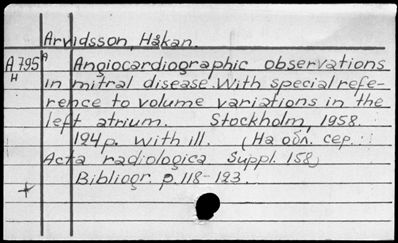 Arvidsson, Håkan.
A795 A Angiocardiographic observations
H in mitral disease. With special refe-
rence to volume variations in the
left atrium. Stockholm, 1958.
124p. with ill. (На обл. сер.:
Acta radiologica. Suppl. 158)
Bibliogr. p. 118-123.